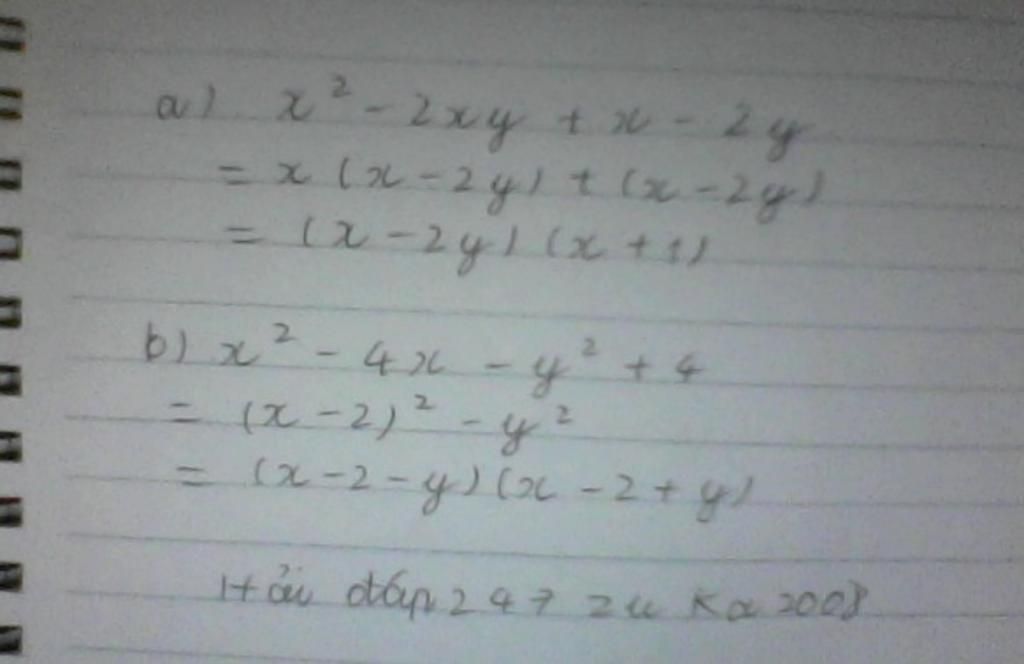 a) x² - 2xy + x - 2y
= x (x - 2y) + (x - 2y)
= (x - 2y) (x + 1)
b) x² - 4x - y² + 4
= (x - 2)² - y²
= (x - 2 - y) (x - 2 + y)
Hỏi đáp 247 zuka2008